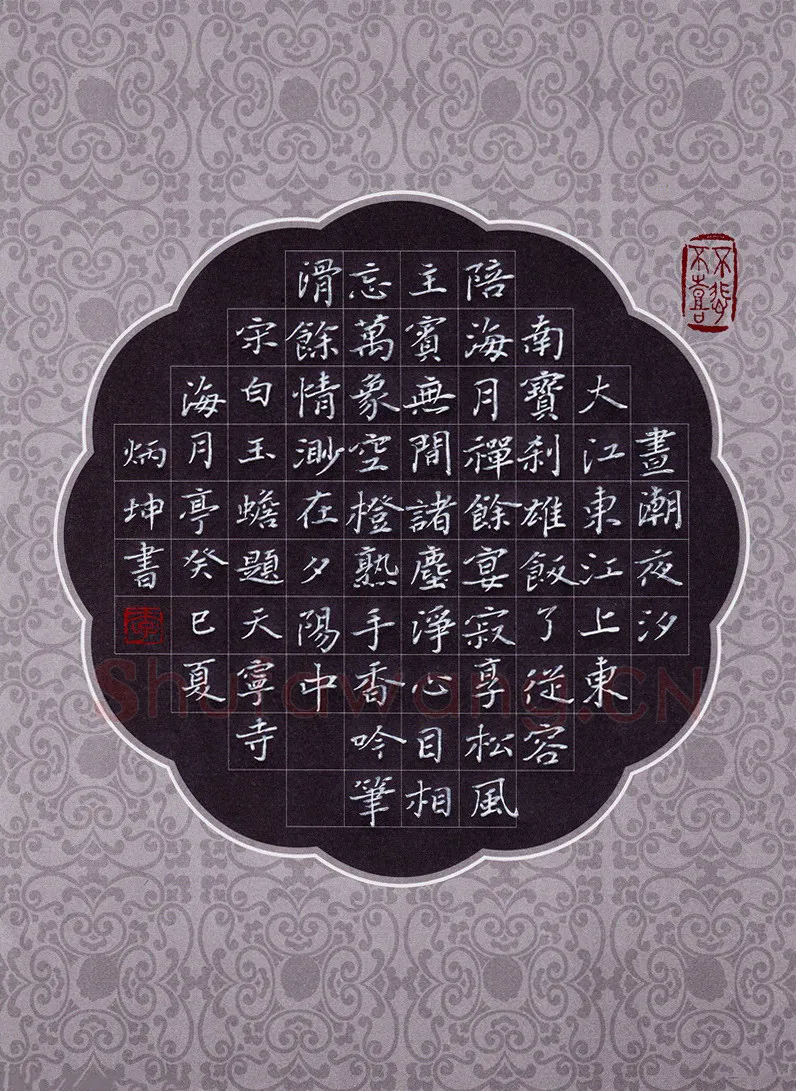 晝潮夜汐
大江東江上東
南寶刹雄飯了從容
陪海月禪餘宴寂享松風
主賓無間諸塵淨心目相
忘萬象空橙熟手香吟筆
滑餘情渺在夕陽中
宋白玉蟾題天寧寺
海月亭癸巳夏
炳坤書
不悲
不喜
Shufawang.CN